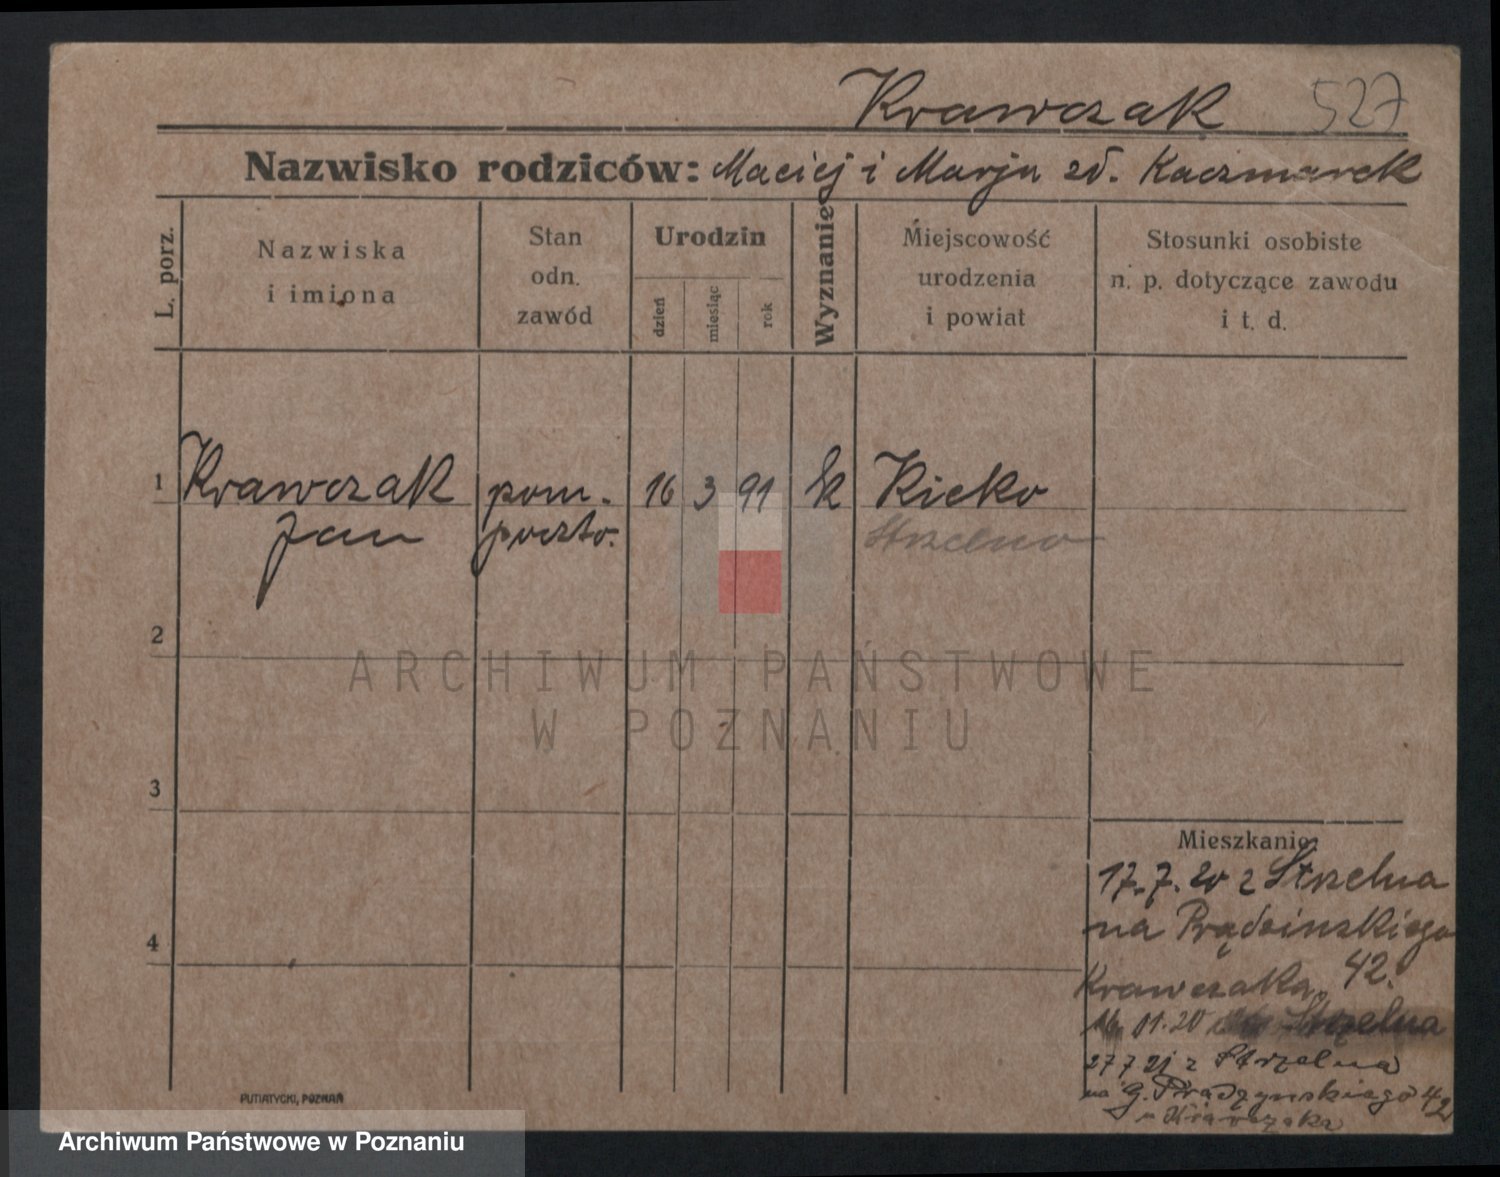 Krawczak 527
Nazwisko rodziców: Maciej i Marja zd. Kaczmarek
L. porz.
Nazwiska
i imiona
Stan
odn.
zawód
Urodzin
dzień
miesiąc
rok
Wyznanie
Miejscowość
urodzenia
i powiat
Stosunki osobiste
n. p. dotyczące zawodu
i t. d.
1 Krawczak pom. 16 3 91 k
Jan poczto.
Strzelno
2
ARCHIWUM PAŃSTWOWE
W POZNANIU
3
Mieszkanie:
17.7.20 z Strzelna
na Prądzinskiego
4
Krawczaka 42.
01.20 Strzelna
27 7 21 z Strzelna
na G. Prądzynskiego 42
u Krawczaka
PUTIATYCKI, POZNAŃ
Archiwum Państwowe w Poznaniu